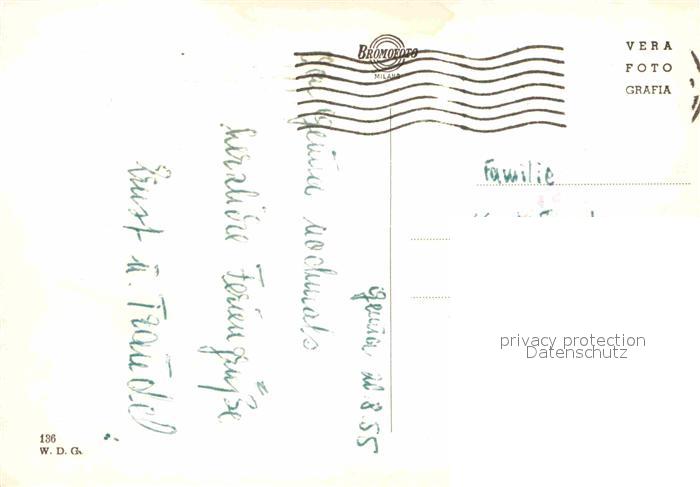 BROMOFOTO
MILANO
VERA
FOTO
GRAFIA
Genua 8.55
Von Genua nochmals
herzliche Feriengrüße
Ernst u. Traudel
Familie
privacy protection
Datenschutz
136
W. D. G.